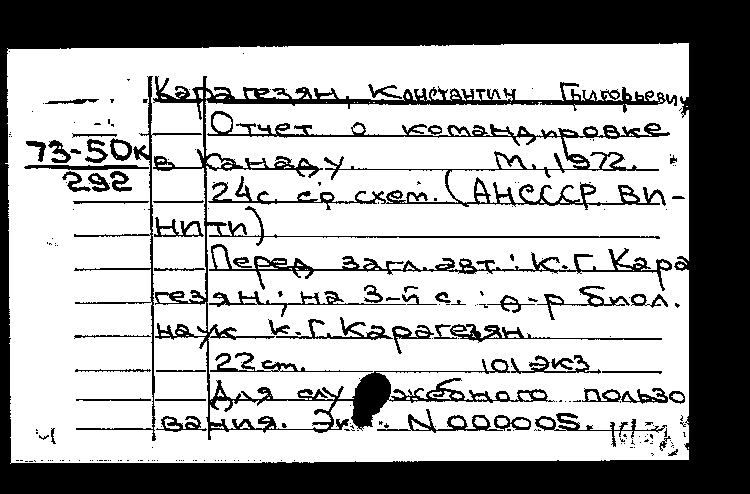 Карагезян, Константин Григорьевич
Отчет о командировке
73-50к
292
в Канаду. М., 1972.
24с. со схем. (АНСССР ВИ-
НИТИ).
Перед загл. авт.: К.Г. Кара
гезян.; на 3-й с. : д-р биол.
наук К.Г. Карагезян.
22 cm. 101 экз
Для служебного пользо
вания. Экз. N 000005.